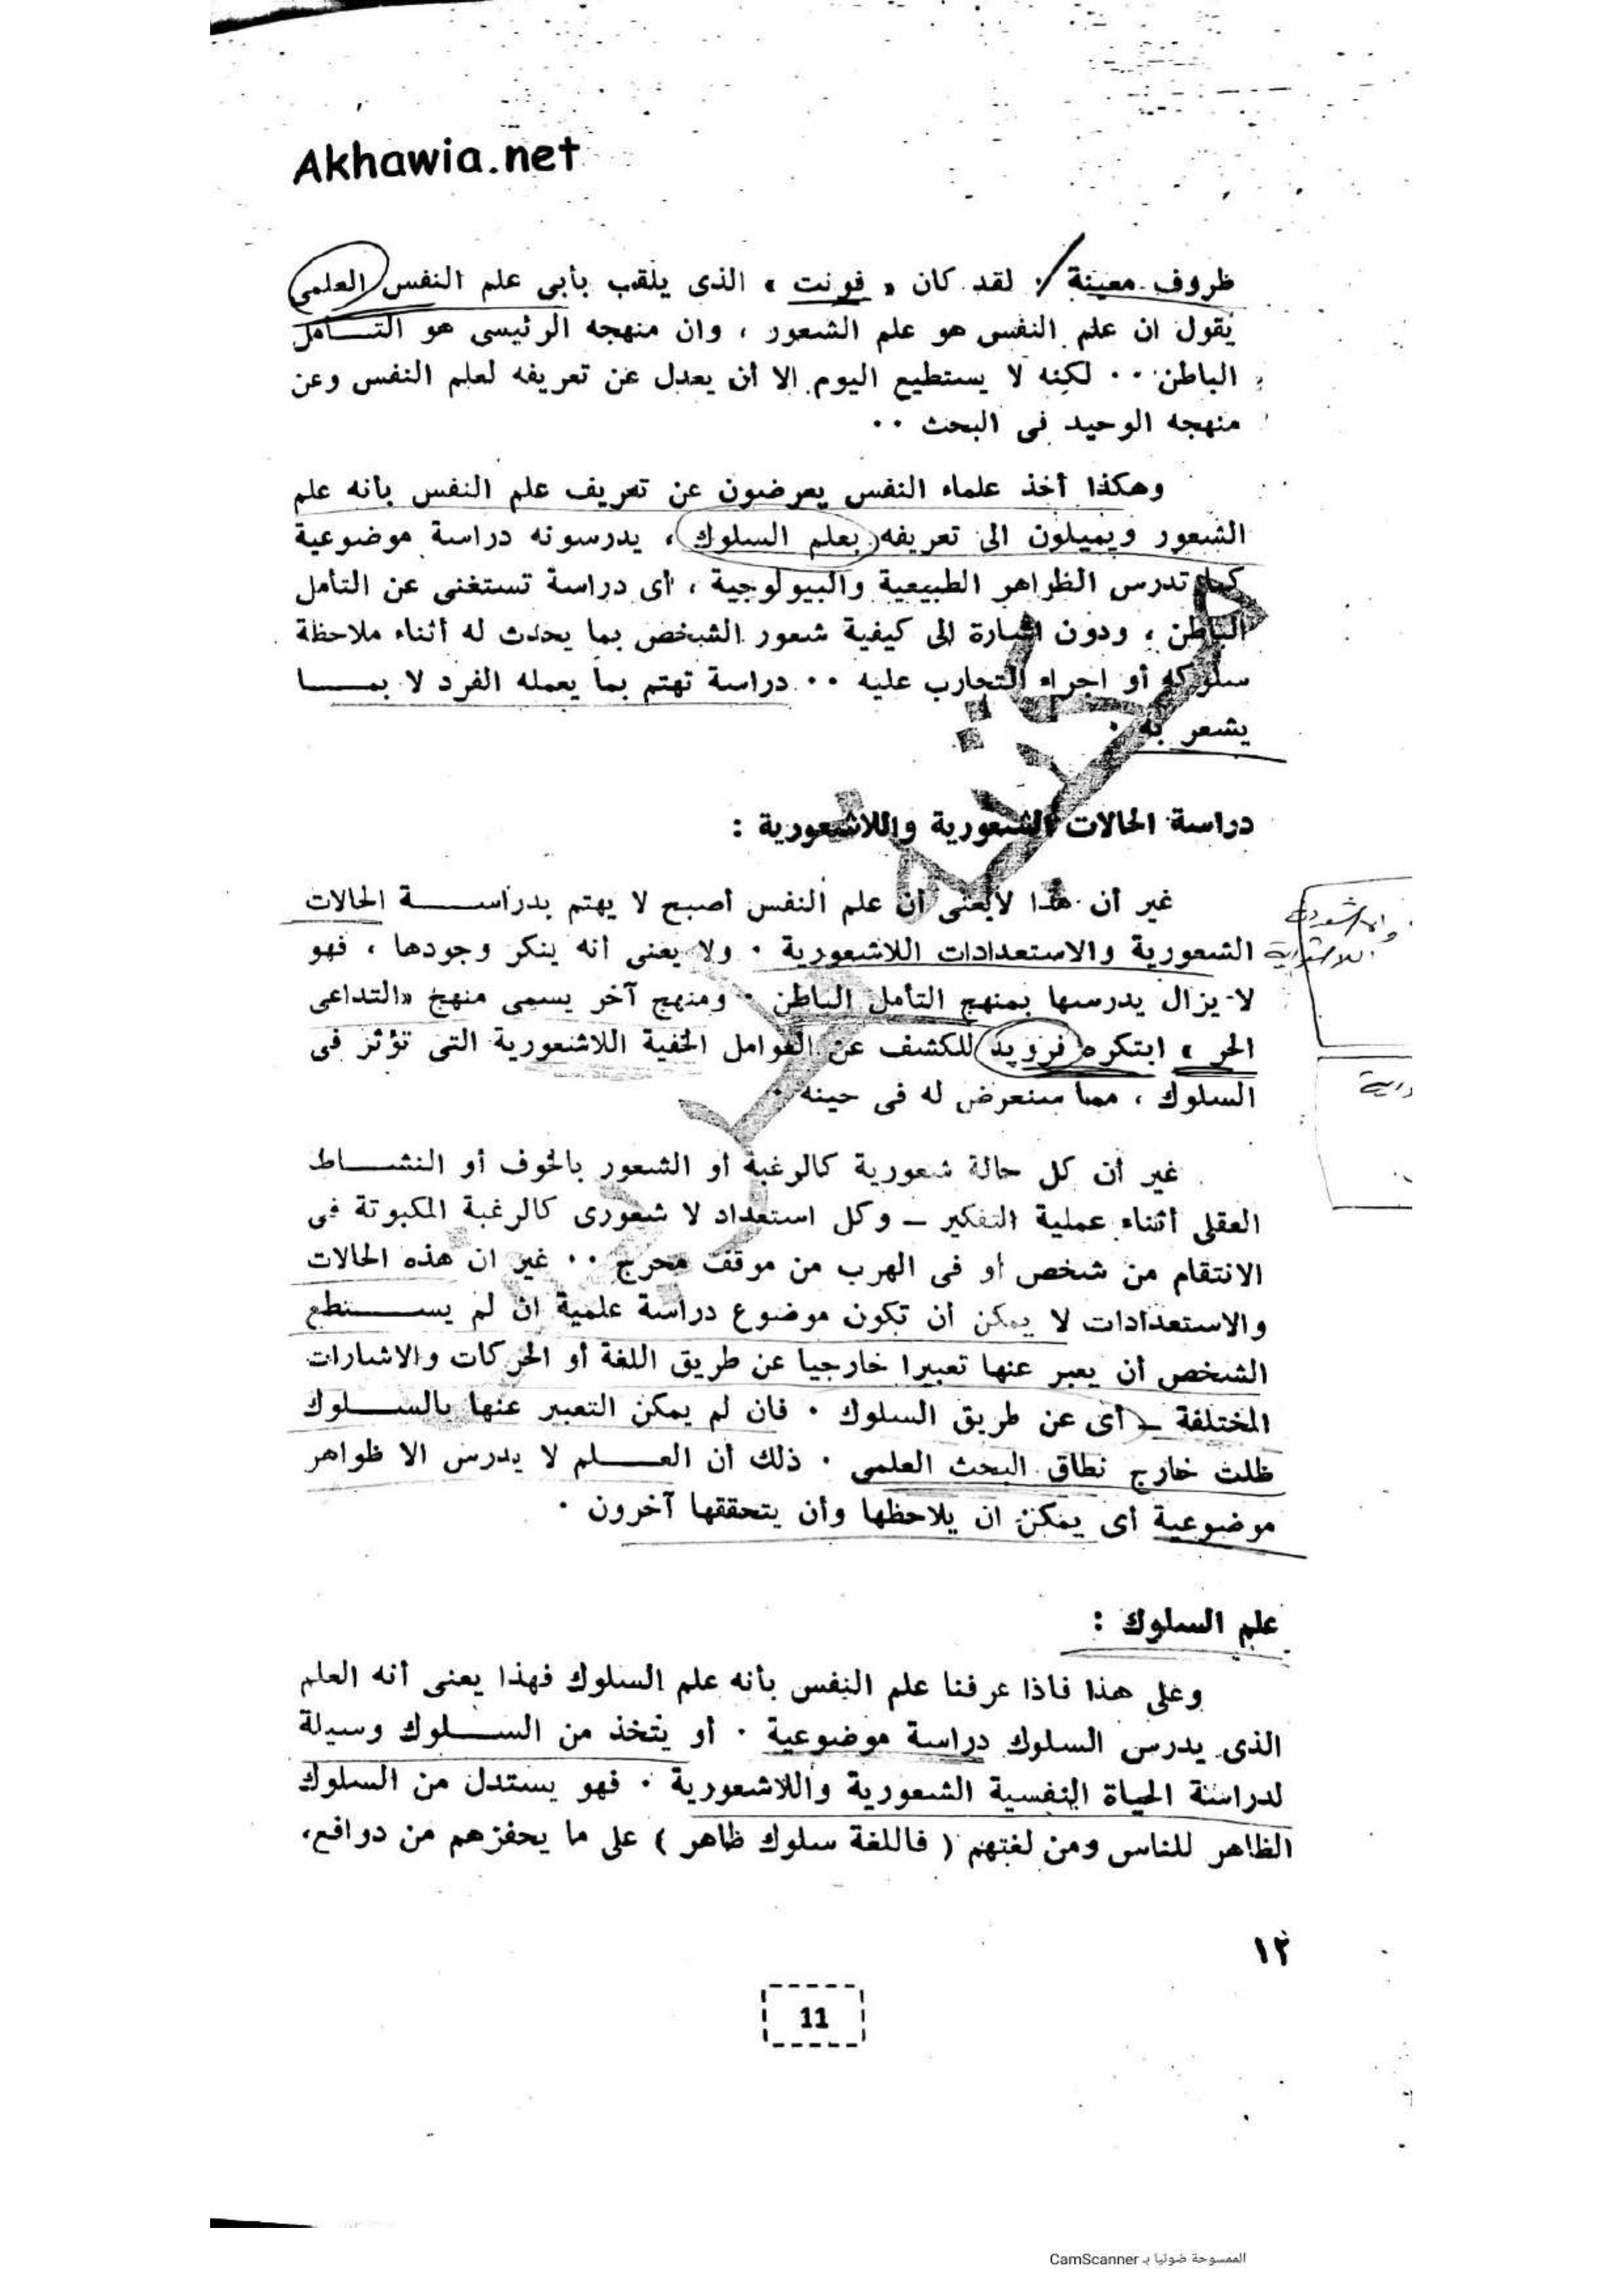 Akhawia.net
ظروف معينة . لقد كان « فونت » الذى يلقب بأبى علم النفس العلمى
يقول ان علم النفس هو علم الشعور ، وان منهجه الرئيسى هو التــأمل
الباطن . . لكنه لا يستطيع اليوم الا أن يعدل عن تعريفه لعلم النفس وعن
منهجه الوحيد فى البحث . .
وهكذا أخذ علماء النفس يعرضون عن تعريف علم النفس بأنه علم
الشعور ويميلون الى تعريفه بعلم السلوك ، يدرسونه دراسة موضوعية
كما تدرس الظواهر الطبيعية والبيولوجية ، أى دراسة تستغنى عن التأمل
الباطن ، ودون اشارة الى كيفية شعور الشخص بما يحدث له أثناء ملاحظة
سلوكه أو اجراء التجارب عليه . . دراسة تهتم بما يعمله الفرد لا بمــا
يشعر به .
دراسة الحالات الشعورية واللاشعورية :
غير أن هذا لا يعنى أن علم النفس أصبح لا يهتم بدراســة الحالات
الشعورية والاستعدادات اللاشعورية . ولا يعنى أنه ينكر وجودها ، فهو
لا يزال يدرسها بمنهج التأمل الباطن . ومنهج آخر يسمى منهج «التداعى
الحر » ابتكره فرويد للكشف عن العوامل الخفية اللاشعورية التى تؤثر فى
السلوك ، مما سنعرض له فى حينه .
غير أن كل حالة شعورية كالرغبة أو الشعور بالخوف أو النشــاط
العقلى أثناء عملية التفكير ــ وكل استعداد لا شعورى كالرغبة المكبوتة فى
الانتقام من شخص أو فى الهرب من موقف محرج . . غير ان هذه الحالات
والاستعدادات لا يمكن أن تكون موضوع دراسة علمية ان لم يســتطع
الشخص أن يعبر عنها تعبيرا خارجيا عن طريق اللغة أو الحركات والاشارات
المختلفة ــ أى عن طريق السلوك . فان لم يمكن التعبير عنها بالســلوك
ظلت خارج نطاق البحث العلمى . ذلك أن العــلم لا يدرس الا ظواهر
موضوعية أى يمكن ان يلاحظها وأن يتحققها آخرون .
علم السلوك :
وعلى هذا فاذا عرفنا علم النفس بأنه علم السلوك فهذا يعنى أنه العلم
الذى يدرس السلوك دراسة موضوعية . أو يتخذ من الســلوك وسيلة
لدراسة الحياة النفسية الشعورية واللاشعورية . فهو يستدل من السلوك
الظاهر للناس ومن لغتهم ( فاللغة سلوك ظاهر ) على ما يحفزهم من دوافع،
١٢
11
الممسوحة ضوئيا بـ CamScanner